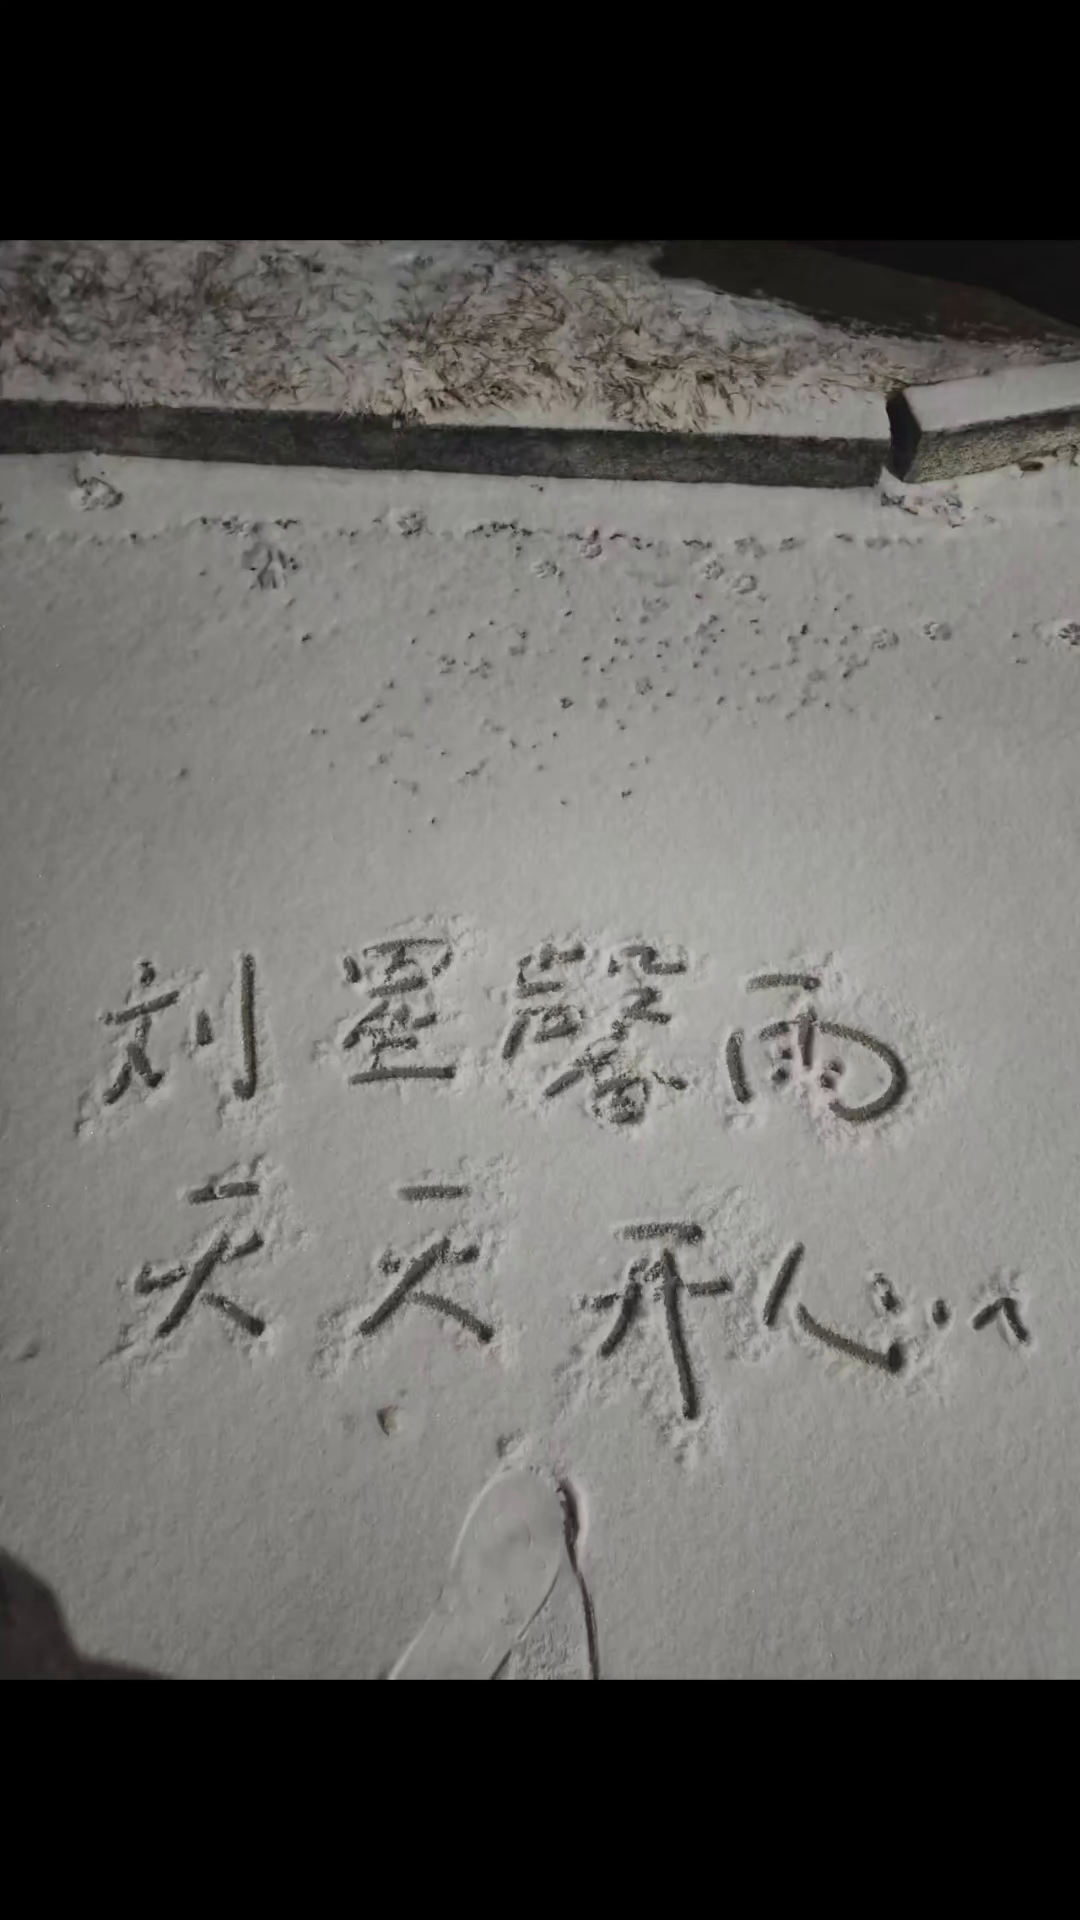 刘星馨雨
天天开心